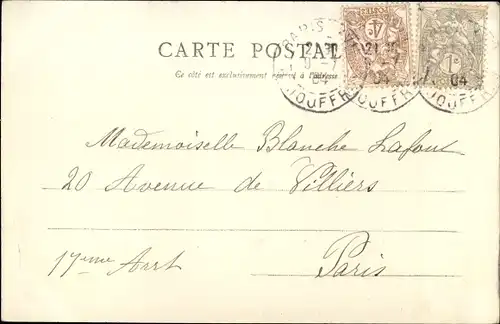 CARTE POSTALE
Ce côté est exclusivement réservé à l'adresse
PARIS
21 30
9 - 7
04
JOUFFR
4c
1c
04
Mademoiselle Blanche Lafont
20 Avenue de Villiers
17eme Arrt
Paris